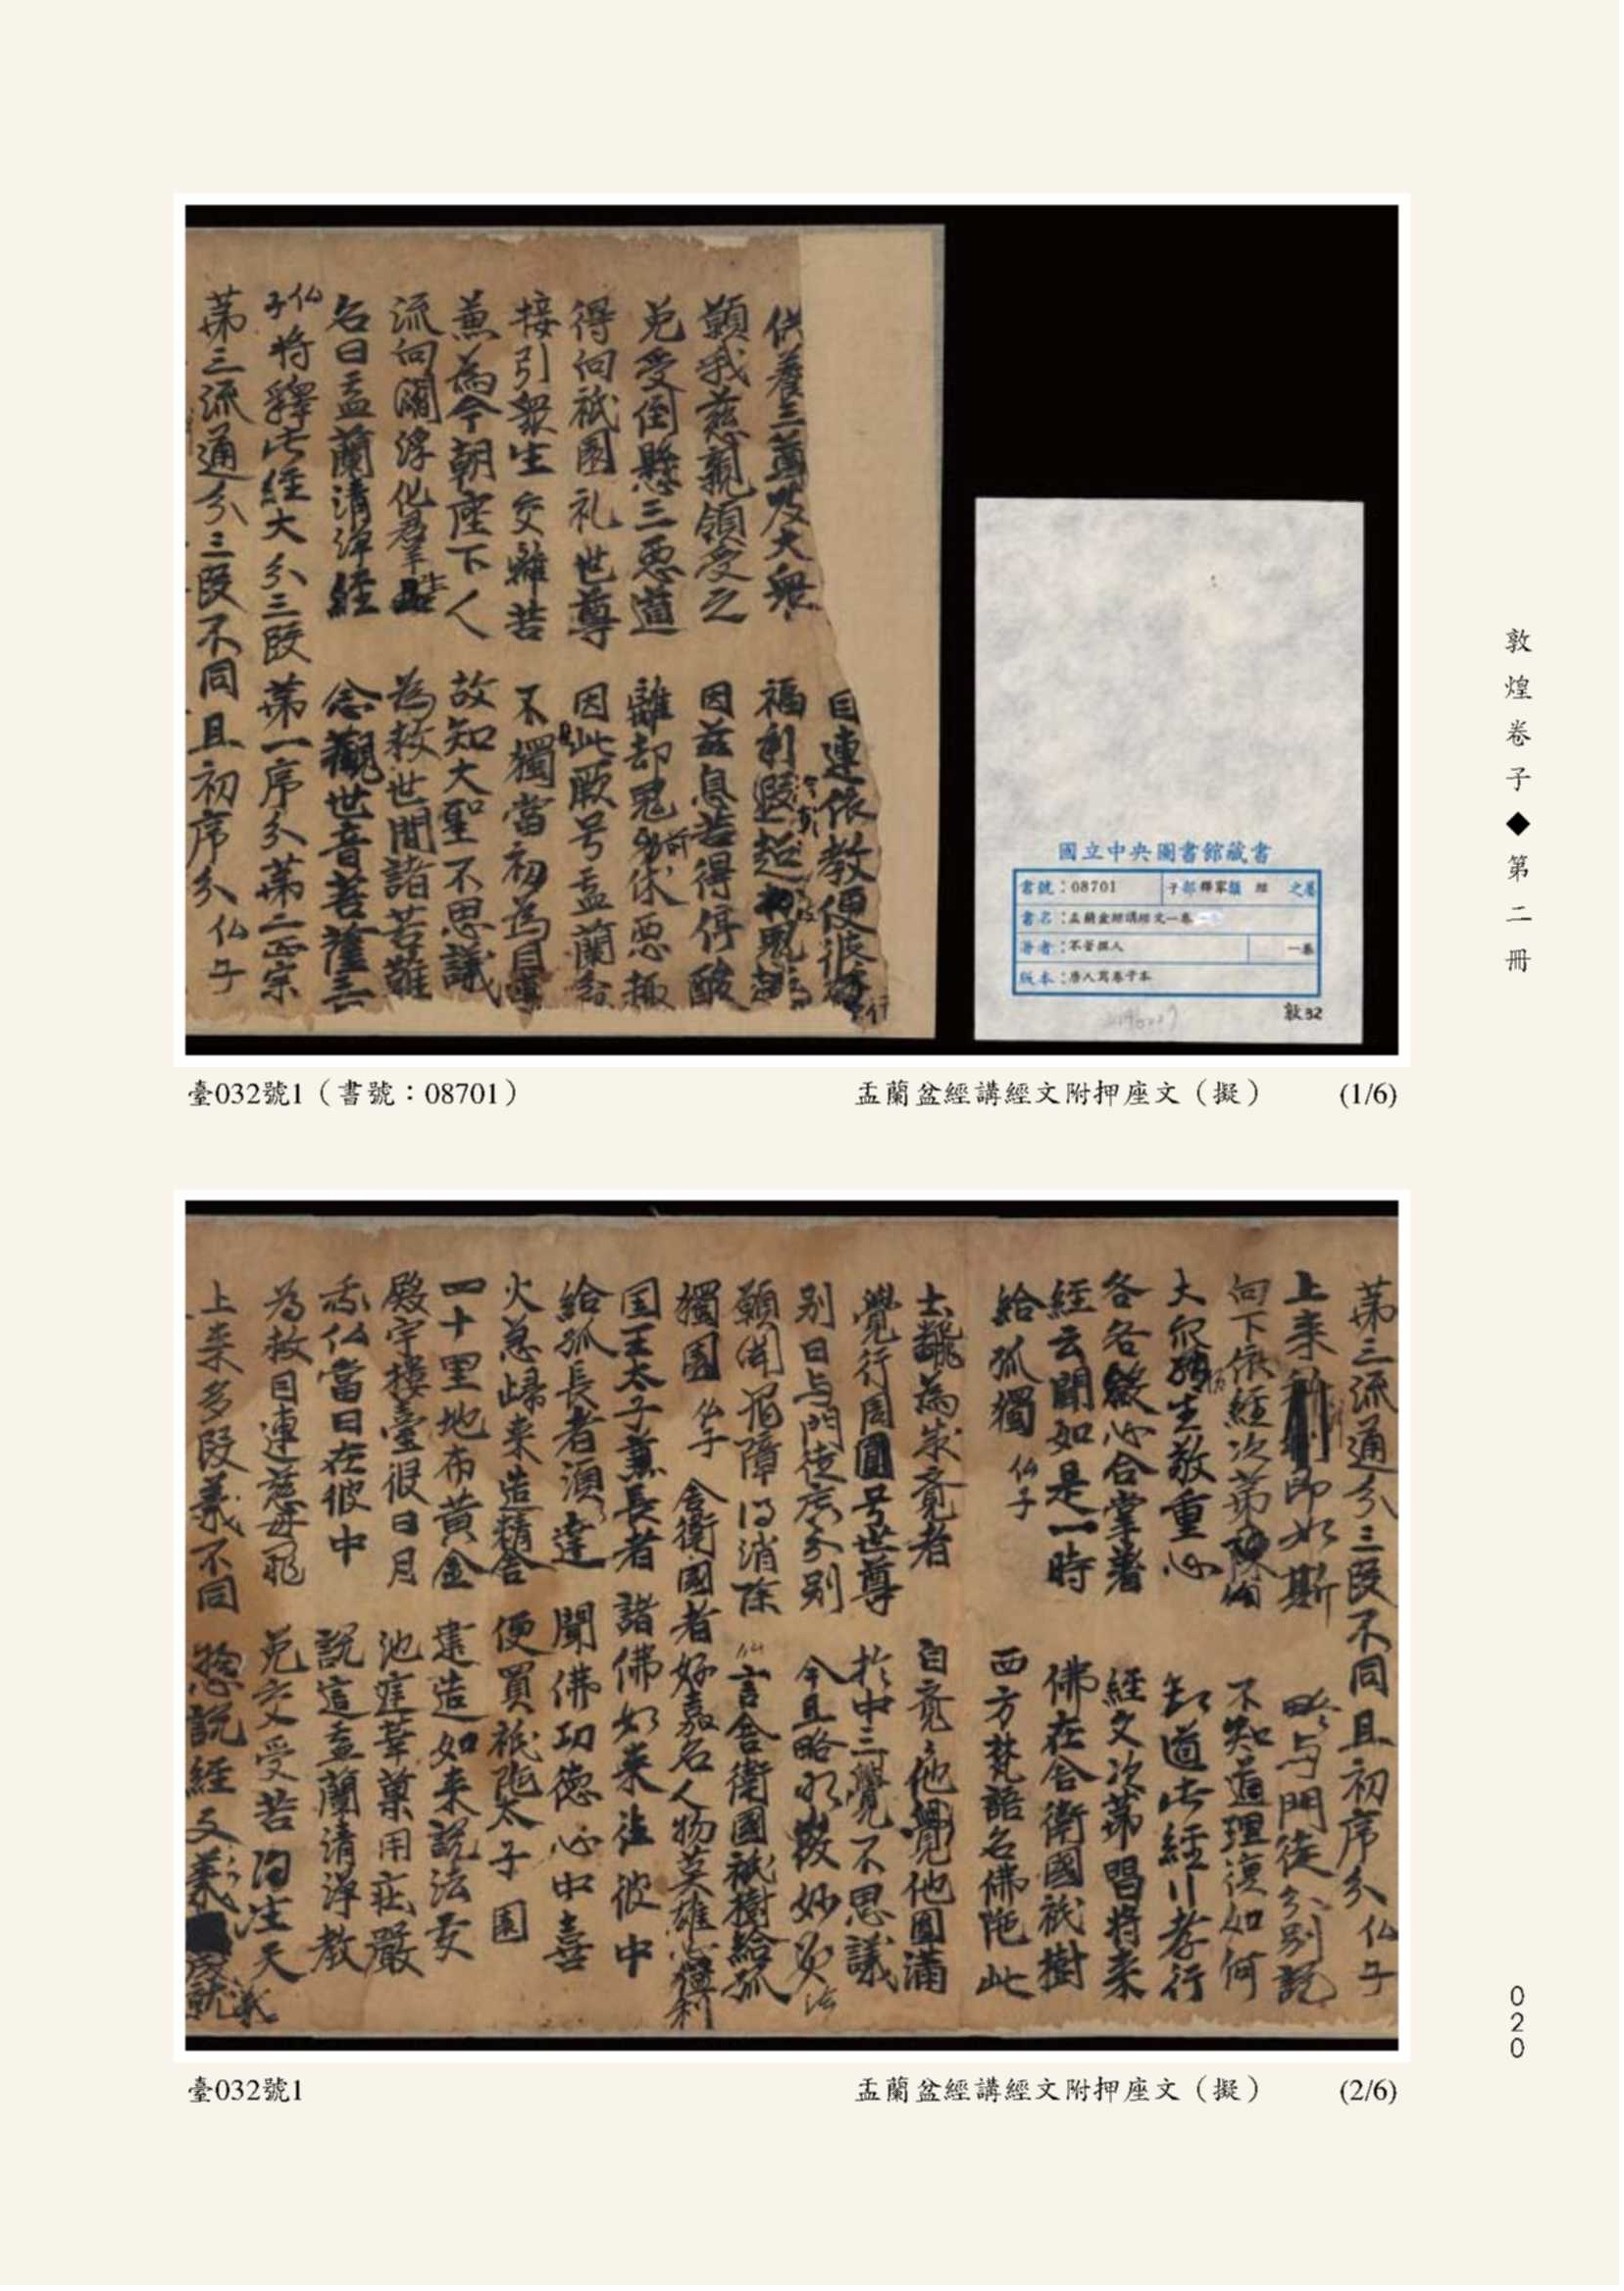 目連依教便彼
供養三尊及大衆 福利
願我慈親領受之 因茲息苦得停酸
免受倒懸三惡道 離却鬼 惡趣
得向祇園礼世尊 因此厥号盂蘭
接引衆生交離苦 不獨當初為目
蕙為今朝座下人 故知大聖不思議
流向閻浮化羣生 為救世間諸苦難
名曰盂蘭清淨經 念觀世音菩薩三
仏子 將釋此經大分三段第一序分第二正宗
第三流通分三段不同且初序分 仏子
國立中央圖書館藏書
書號:08701 子部釋家類 經 之屬
書名:盂蘭盆經講經文一卷
著者:不著撰人 一卷
版本:唐人寫卷子本
敦32
臺032號1（書號：08701） 盂蘭盆經講經文附押座文（擬） (1/6)
第三流通分三段不同且初序分 仏子
上來 即如斯 略与門徒分別說
向下依經次第 不知道理復如何
大衆 生敬重心 此經 孝行
各各斂心合掌著 經文次第唱將來
經云聞如是一時 佛在舍衛國祇樹
給孤獨 仏子 西方梵語名佛陁此
士飜為 覺者 自覺覺他覺他圓滿
覺行周圓号世尊 於中三覺不思議
別日与門徒廣分別 今且略 妙
願聞 障得消除 仏言舍衛國祇樹給孤
獨園 仏子 舍衛國者好嘉名人物英雄
国王太子蕙長者 諸佛如來往彼中
給孤長者須達 聞佛功德心中喜
火急歸來造精舍 便買祇陁太子園
四十里地布黃金 建造如來說法
殿宇樓臺 日月 池 用莊嚴
我仏當日在彼中 說這盂蘭清淨教
為救目連慈母 免交受苦 生天
上來多段義不同 惣 說經文義
臺032號1 盂蘭盆經講經文附押座文（擬） (2/6)
敦煌卷子◆第二冊
020